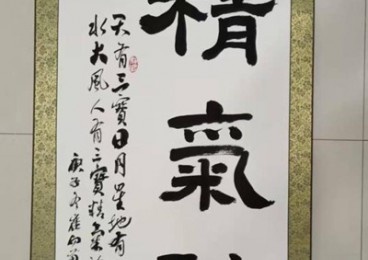 精氣
天有三寳日月星地有
水火風人有三寳精氣
庚子